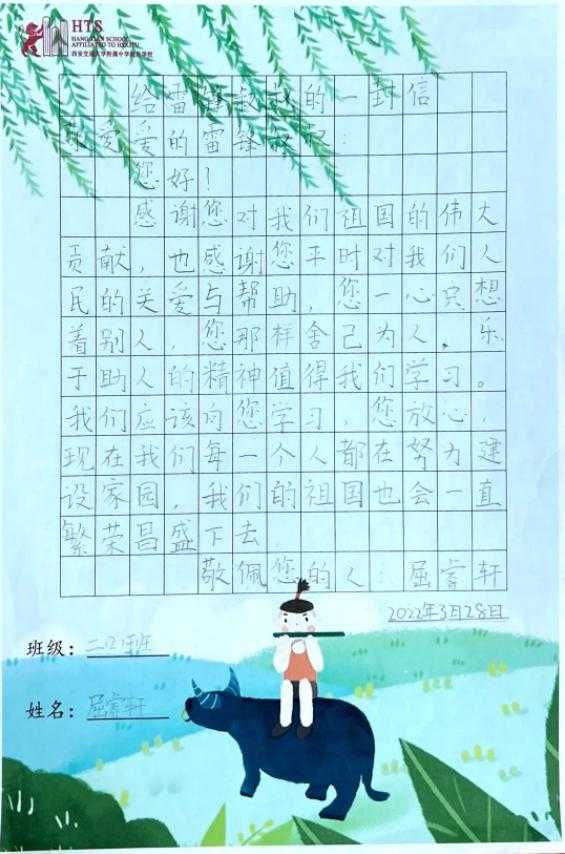 HTS
HANG TIAN SCHOOL
AFFILIATED TO XJTU
西安交通大学附属中学航天学校
给雷锋叔叔的一封信
亲爱的雷锋叔叔：
您好！
感谢您对我们祖国的伟大
贡献，也感谢您平时对我们人
民的关爱与帮助，您一心只想
着别人，您那样舍己为人，乐
于助人的精神值得我们学习。
我们应该向您学习，您放心，
现在我们每一个人都在努力建
设家园，我们的祖国也会一直
繁荣昌盛下去
敬佩您的人：屈睿轩
2022年3月28日
班级：
姓名：屈睿轩